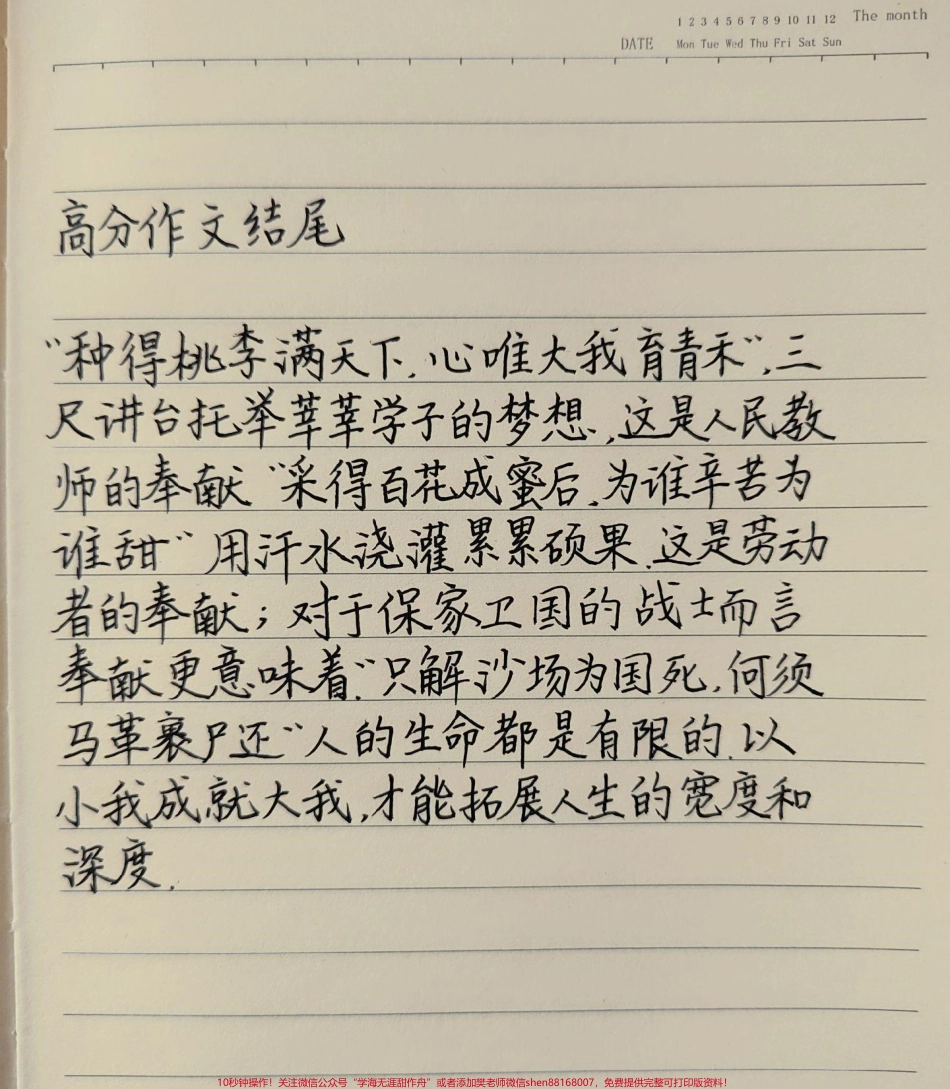 1 2 3 4 5 6 7 8 9 10 11 12 The month
DATE Mon Tue Wed Thu Fri Sat Sun
高分作文结尾
“种得桃李满天下,心唯大我育青禾”,三
尺讲台托举莘莘学子的梦想,这是人民教
师的奉献“采得百花成蜜后,为谁辛苦为
谁甜”用汗水浇灌累累硕果.这是劳动
者的奉献;对于保家卫国的战士而言
奉献更意味着“只解沙场为国死,何须
马革裹尸还”人的生命都是有限的.以
小我成就大我,才能拓展人生的宽度和
深度.
10秒钟操作!关注微信公众号“学海无涯甜作舟”或者添加樊老师微信shen88168007,免费提供完整可打印版资料!